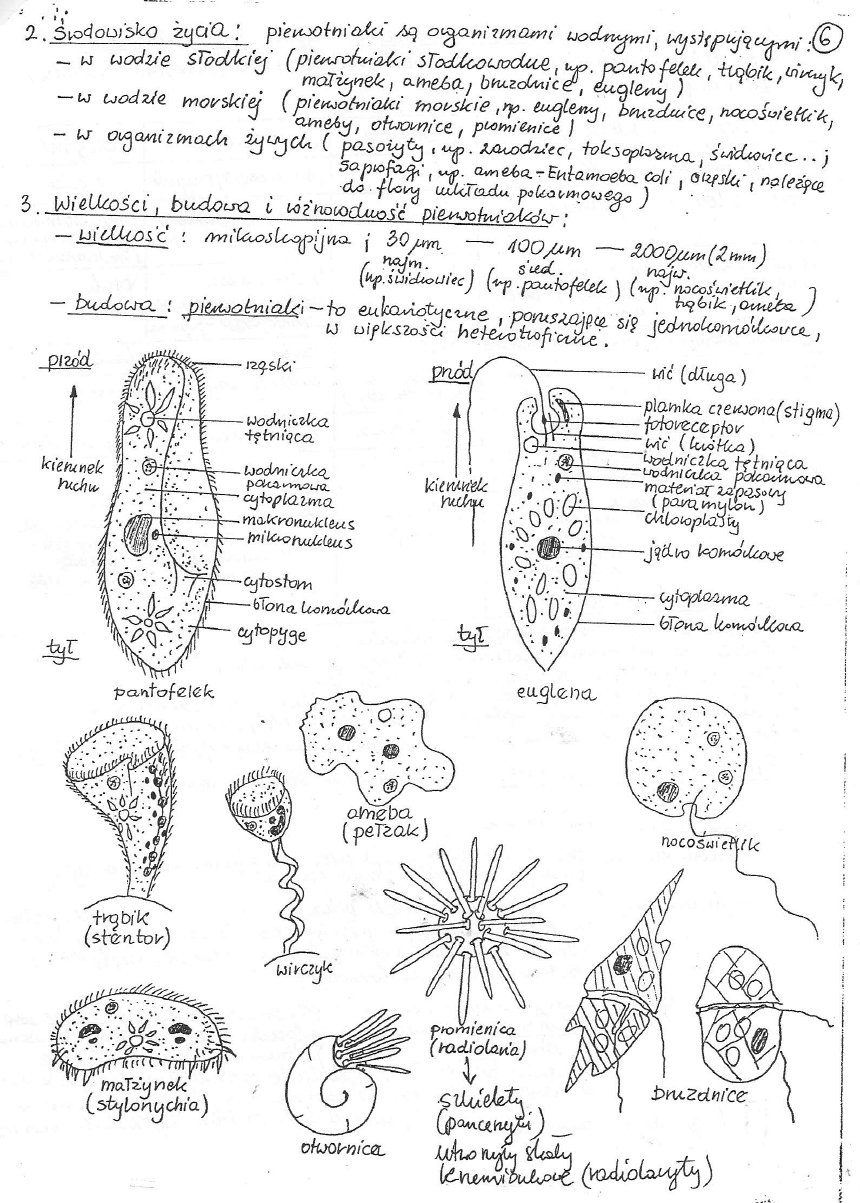 2. Środowisko życia: pierwotniaki są organizmami wodnymi, występującymi: 6
– w wodzie słodkiej (pierwotniaki słodkowodne, np. pantofelek, trąbik, wirczyk,
małżynek, ameba, bruzdnice, eugleny)
– w wodzie morskiej (pierwotniaki morskie, np. eugleny, bruzdnice, nocoświetlik,
ameby, otwornice, promienice)
– w organizmach żywych (pasożyty, np. zarodziec, toksoplazma, świdrowiec..;
saprofagi, np. ameba-Entamoeba coli, orzęski, należące
do flory układu pokarmowego)
3. Wielkości, budowa i różnorodność pierwotniaków:
– wielkość: mikroskopijna; 30 µm — 100 µm — 2000 µm (2mm)
najm. śred. najw.
(np. świdrowiec) (np. pantofelek) (np. nocoświetlik,
trąbik, ameba)
– budowa: pierwotniaki – to eukariotyczne, poruszające się jednokomórkowce,
w większości heterotroficzne.
przód
rzęski
wodniczka
tętniąca
kierunek
ruchu
wodniczka
pokarmowa
cytoplazma
makronukleus
mikronukleus
cytostom
błona komórkowa
cytopyge
tył
pantofelek
przód
wić (długa)
plamka czerwona (stigma)
fotoreceptor
wić (krótka)
wodniczka tętniąca
wodniczka pokarmowa
kierunek
ruchu
materiał zapasowy
(paramylon)
chloroplasty
jądro komórkowe
cytoplazma
błona komórkowa
tył
euglena
ameba
(pełzak)
nocoświetlik
trąbik
(stentor)
wirczyk
promienica
(radiolaria)
szkielety
(pancerzyki)
utworzyły skały
krzemionkowe (radiolaryty)
małżynek
(stylonychia)
otwornica
bruzdnice